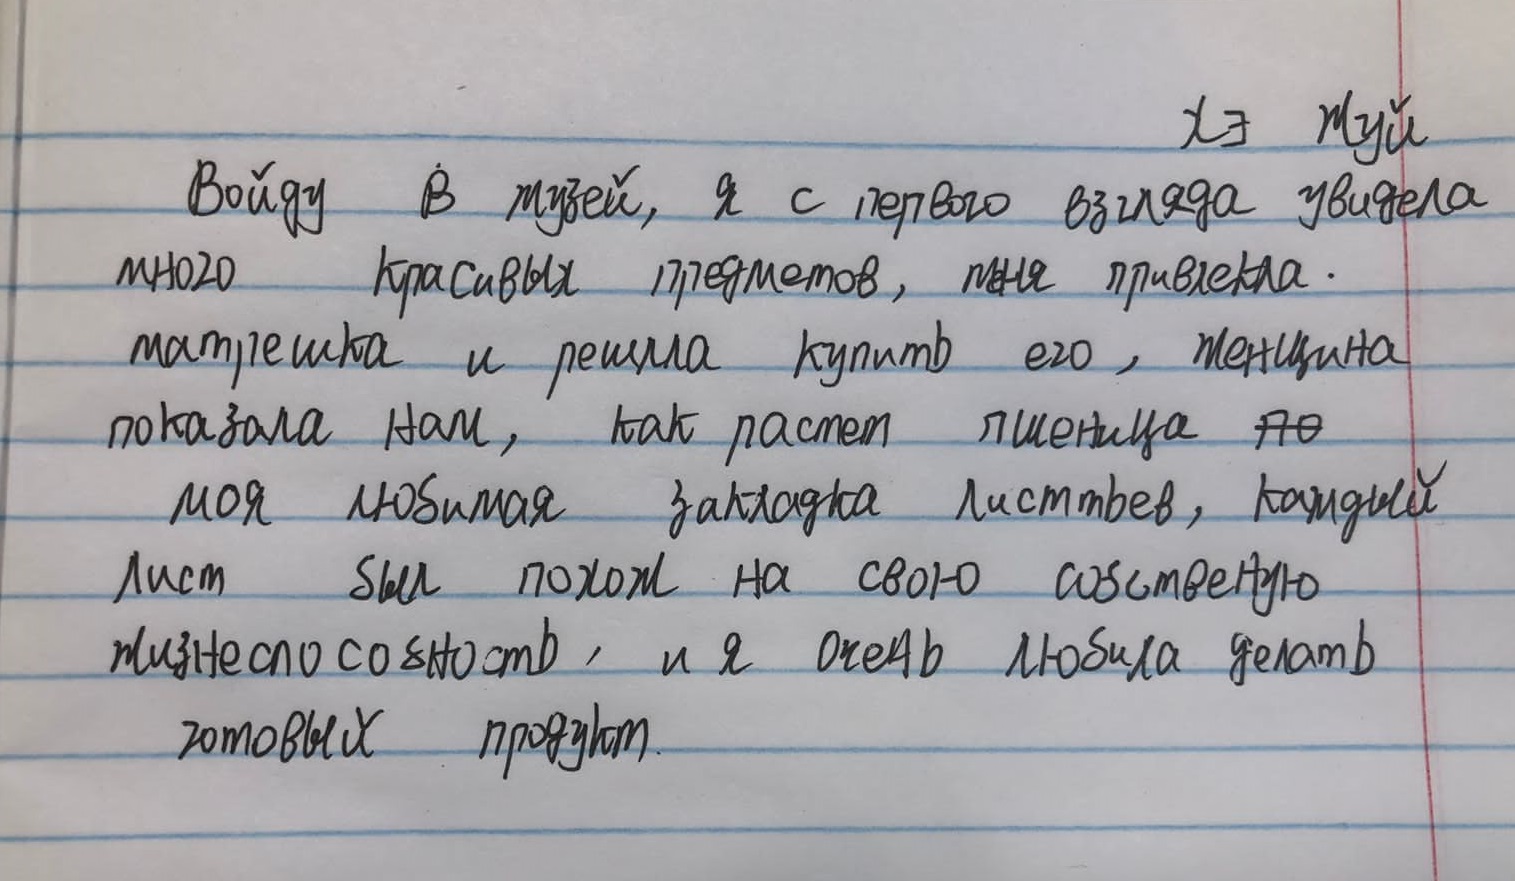 Хэ Жуй
Войду в музей, я с первого взгляда увидела
много красивых предметов, меня привлекла.
матрешка и решила купить его, женщина
показала нам, как растет пшеница по
моя любимая закладка листтьев, каждый
лист был похож на свою собственую
жизнеспособность, и я очень любила делать
готовых продукт.